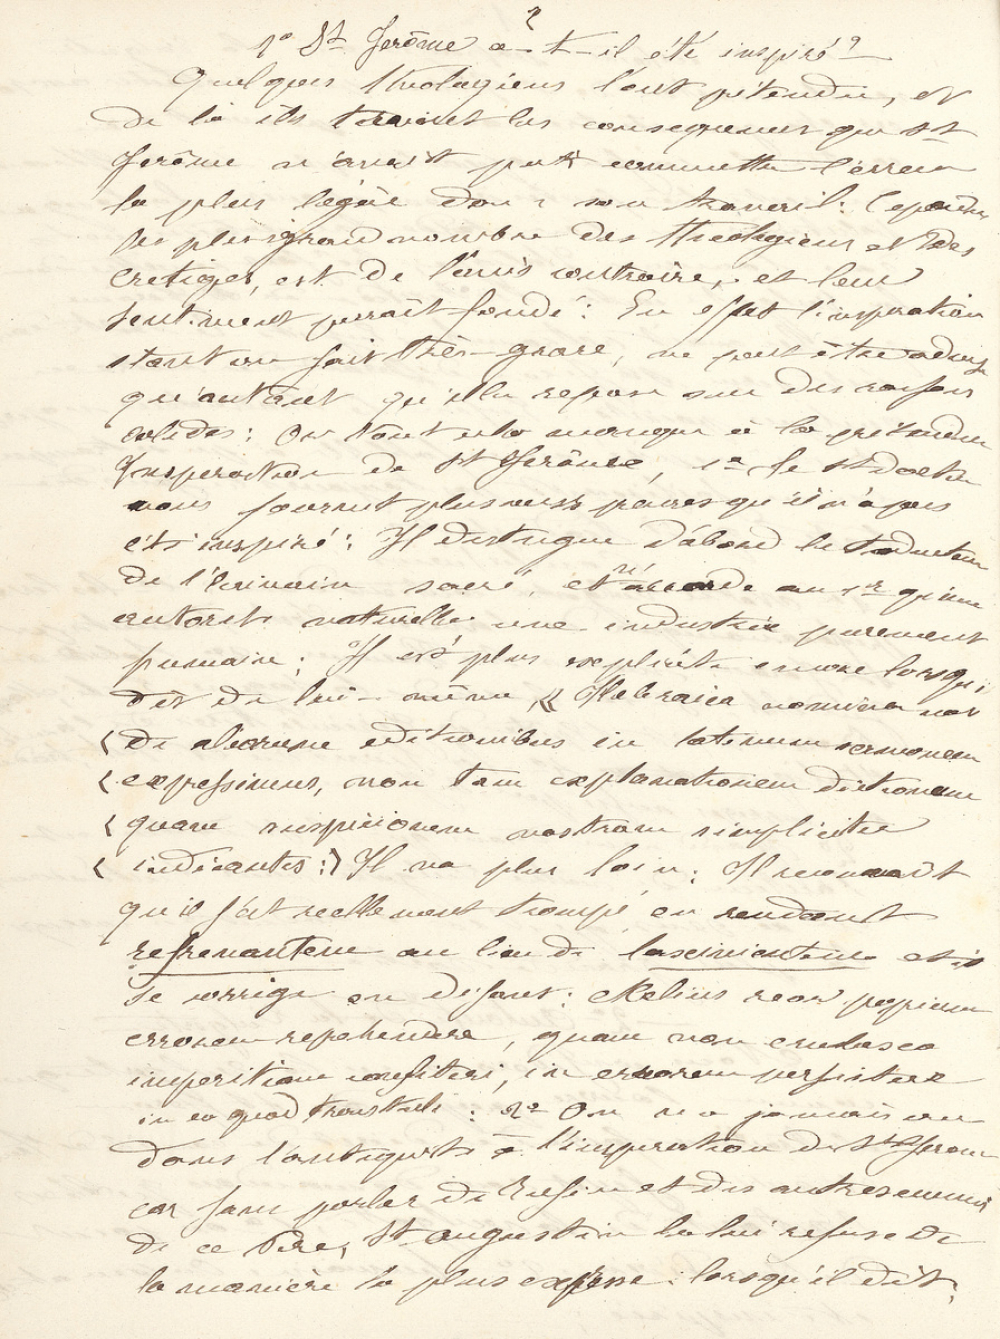 2
1° St Jerôme a-t-il été inspiré?
Quelques théologiens l'ont prétendu, et
de là ils tiraient les consequences que St
Jerôme n'avait put commettre l'erreur
la plus légère dans son travail: Cependant
les plus grand nombre des théologiens et des
critiques, est de l'avis contraire, et leur
sentiment parait fondé: En effet l'inspiration
étant un fait très-grave, ne peut être admise
qu'autant qu'elle repose sur des raisons
solides: Or tout cela manque à la prétendue
Inspiration de St Jerôme, 1° le St docteur
nous fournit plusieurs preuves qu'il n'a pas
été inspiré: Il distingue d'abord le traducteur
de l'Ecrivain sacré, et n'accorde au 1er qu'une
autorité naturelle une industrie purement
humaine; Il est plus explicite encore lorsqu'il
dit de lui-même, « Hebraica nomina non
« de aliorum editionibus in latinum sermonem
« expressimus, non tam explanationem dictionum
« quam suspicionem nostram simpliciter
« indicantes:» Il va plus loin: Il reconnait
qu'il s'est reellement trompé en rendant
refrenantem au lieu de lascivientem et il
se corrige en disant: Melius reor proprium
errorem reprehendere, quam non erubesco
imperitiam confiteri, in errorem persistere
in eo quod transtuli: 2° On n'a jamais cru
dans l'antiquité à l'inspiration de St Jerome
car sans parler de Rufin et des autres ennemis
de ce Père, St Augustin la lui refuse de
la manière la plus expresse: lorsqu'il dit,